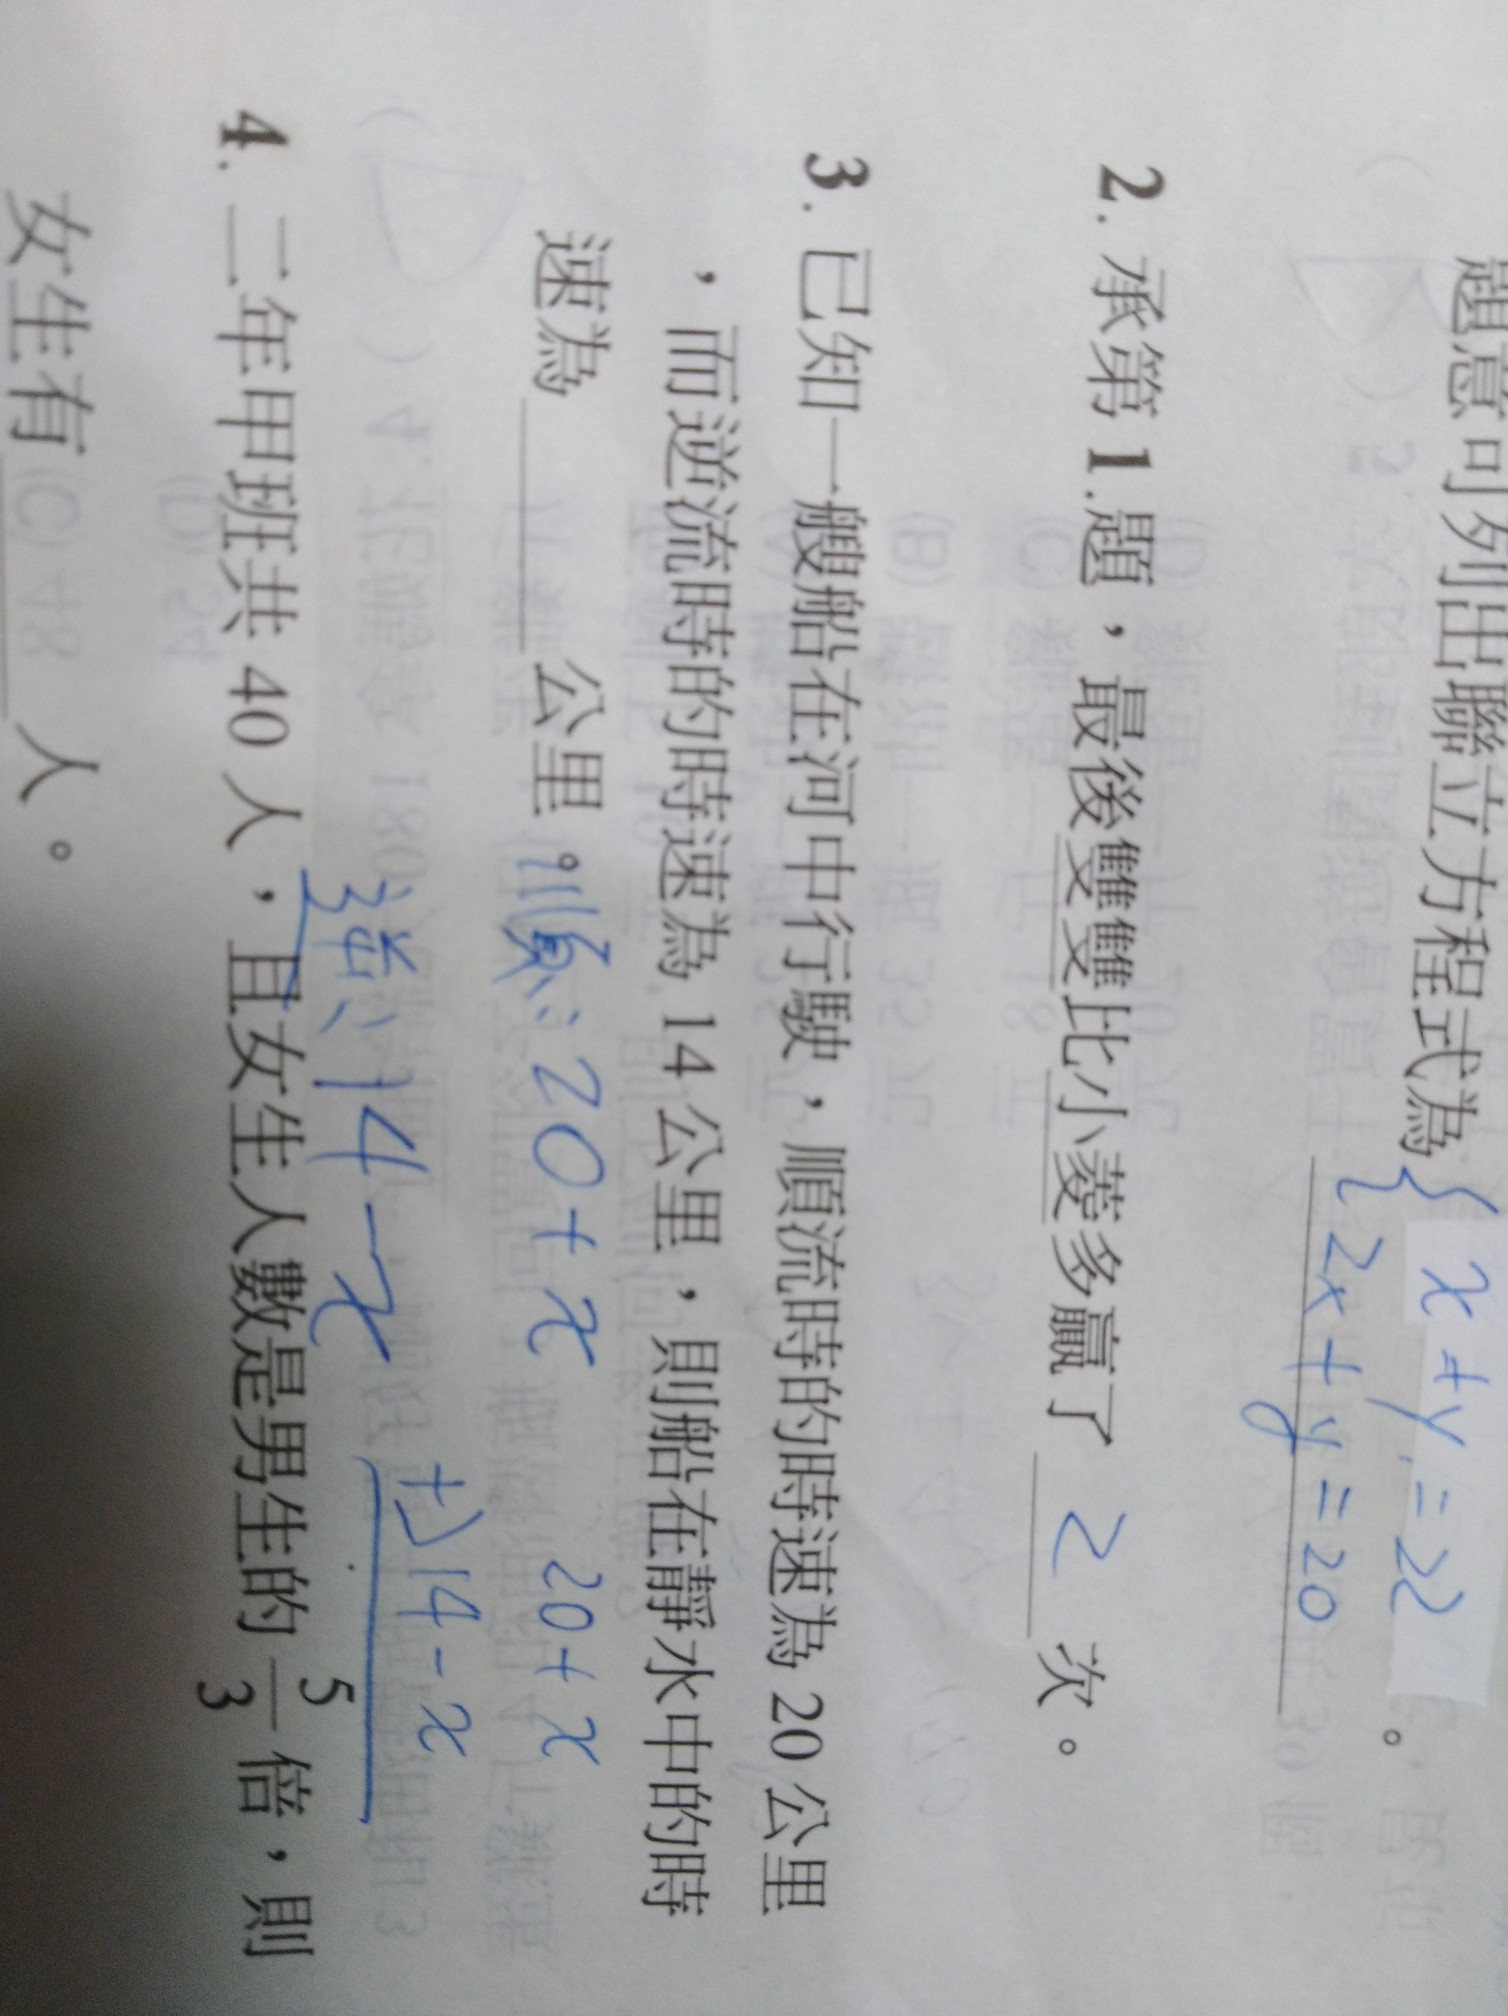 題意可列出聯立方程式為 { x+y=22
2x+y=20 。
2. 承第1.題，最後雙雙比小菱多贏了 2 次。
3. 已知一艘船在河中行駛，順流時的時速為20公里
，而逆流時的時速為14公里，則船在靜水中的時
速為＿＿＿公里。順：20+x
逆：14-x
20+x
+)14-x
4. 二年甲班共40人，且女生人數是男生的5/3倍，則
女生有＿＿＿人。